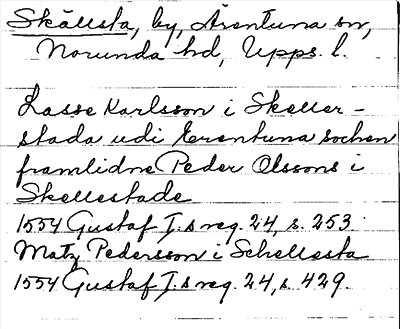 Skällsta, by, Ärentuna sn,
Norunda hd, Upps. l.
Lasse Karlsson i Skeller-
stada udi Erentuna sochen
framlidne Peder Olssons i
Skellestade
1554 Gustaf I.s reg. 24, s. 253.
Matz Pedersson i Schellesta
1554 Gustaf I.s reg. 24, s. 429.